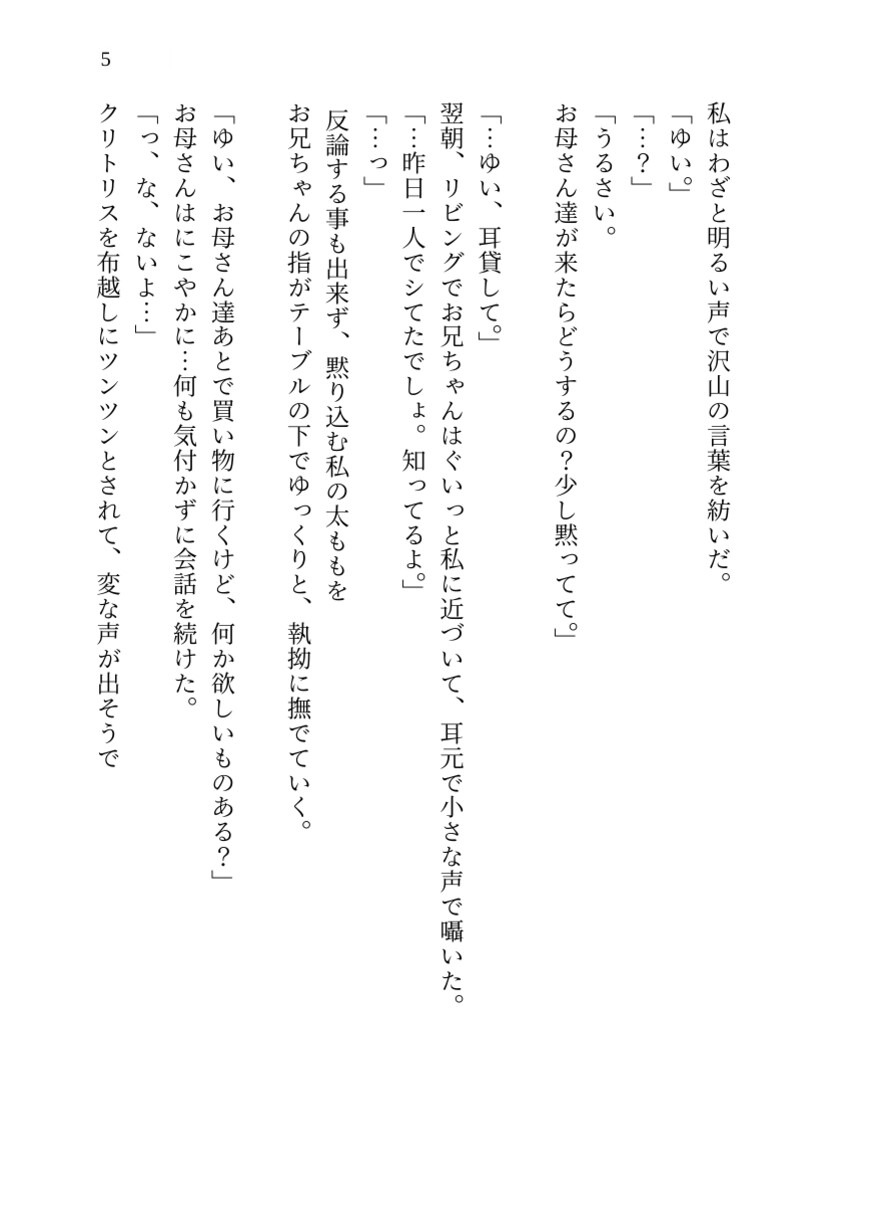 5
私はわざと明るい声で沢山の言葉を紡いだ。
「ゆい。」
「…？」
「うるさい。
お母さん達が来たらどうするの？少し黙ってて。」
「…ゆい、耳貸して。」
翌朝、リビングでお兄ちゃんはぐいっと私に近づいて、耳元で小さな声で囁いた。
「…昨日一人でシてたでしょ。知ってるよ。」
「…っ」
反論する事も出来ず、黙り込む私の太ももを
お兄ちゃんの指がテーブルの下でゆっくりと、執拗に撫でていく。
「ゆい、お母さん達あとで買い物に行くけど、何か欲しいものある？」
お母さんはにこやかに…何も気付かずに会話を続けた。
「っ、な、ないよ…」
クリトリスを布越しにツンツンとされて、変な声が出そうで